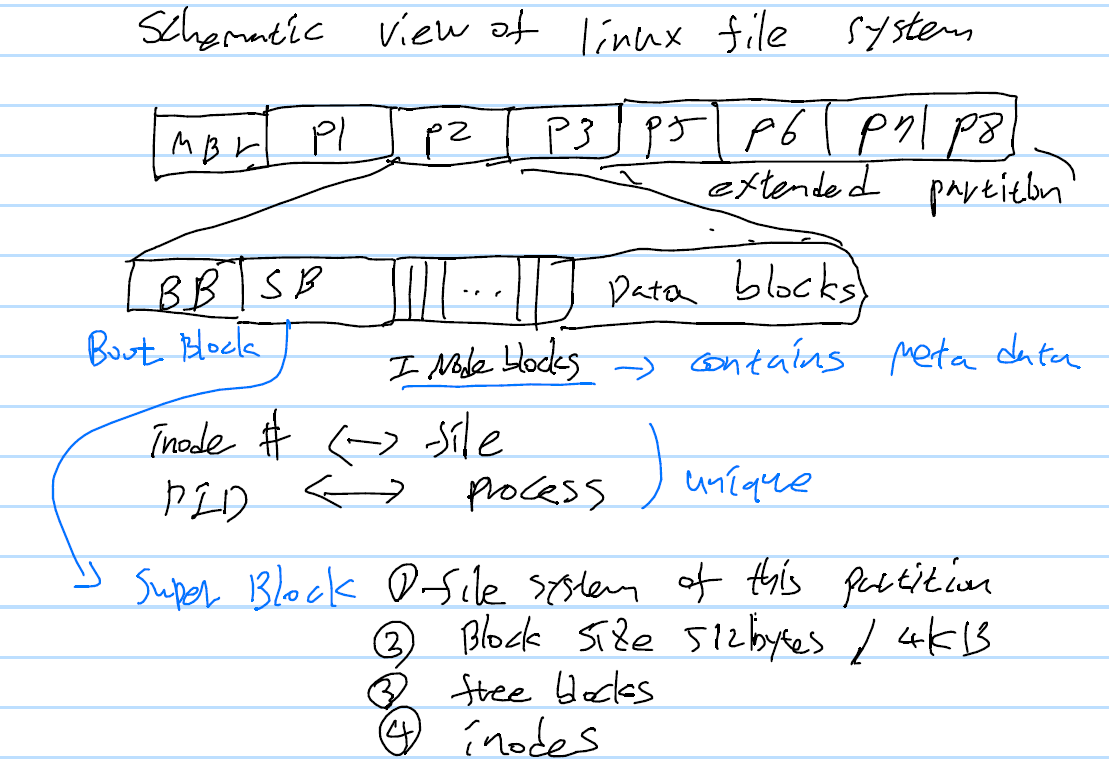 Schematic view of linux file system
MBr P1 P2 P3 P5 P6 P7 P8
extended partition
BB SB ... Data blocks
Boot Block
I Node blocks → contains Meta data
inode # <-> file
PID <-> process
unique
Super Block ① file system of this partition
② Block size 512bytes / 4KB
③ free blocks
④ inodes